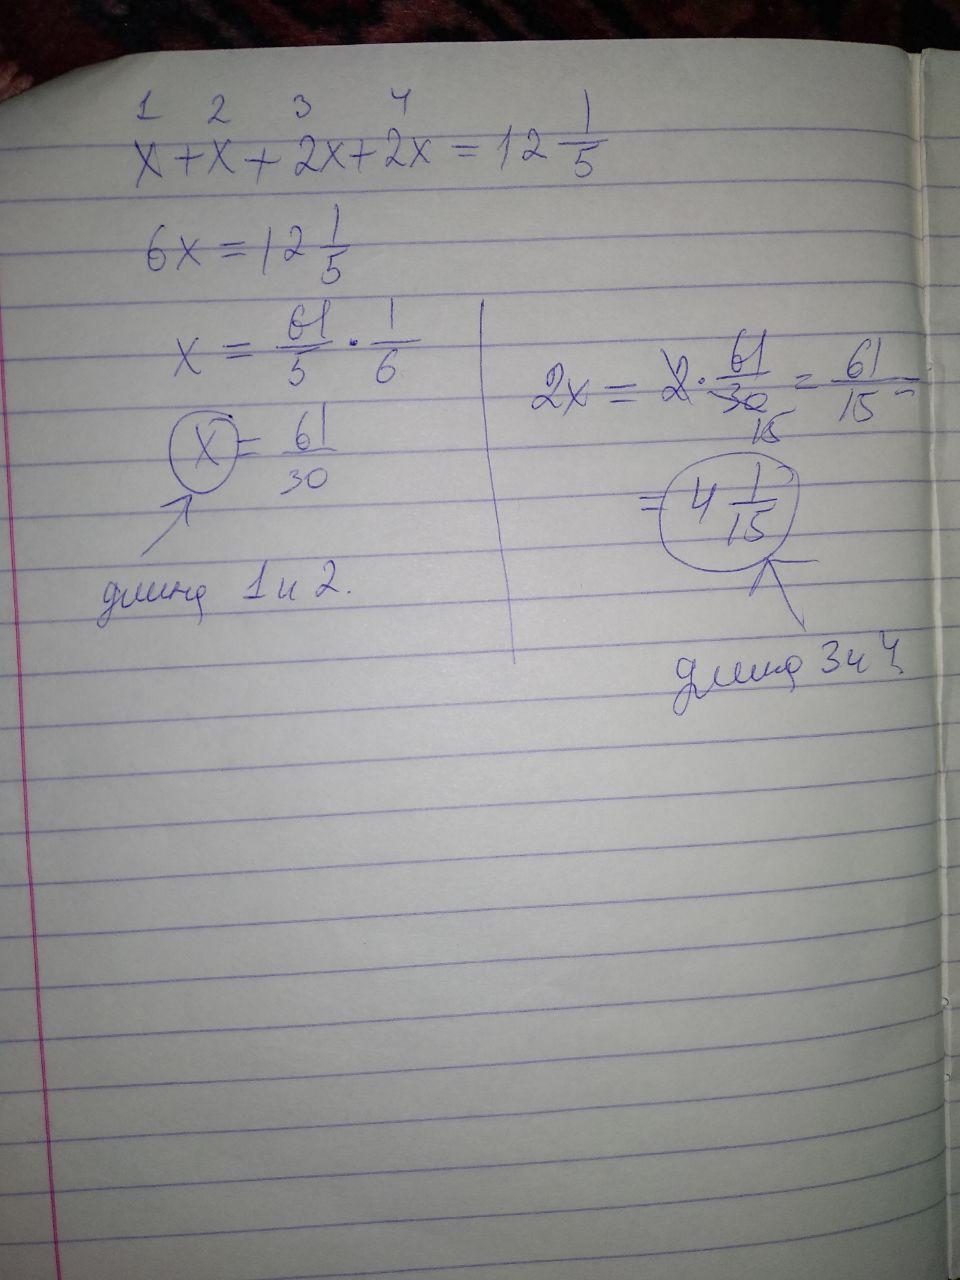 1 2 3 4
x + x + 2x + 2x = 12 1/5
6x = 12 1/5
x = 61/5 · 1/6
x = 61/30
длина 1 и 2.
2x = 2 · 61/30 = 61/15 =
15
= 4 1/15
длина 3 и 4